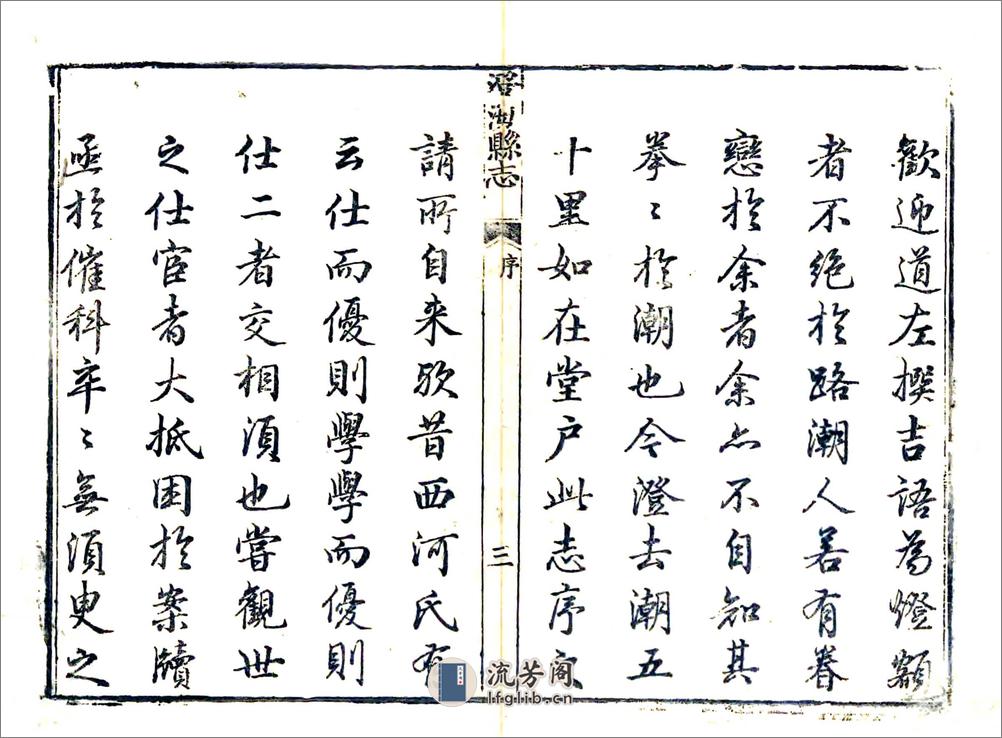 歡迎道左撰吉語為燈額
者不絕於路潮人若有眷
戀於余者余亦不自知其
拳〻於潮也今澄去潮五
十里如在堂戶此志序之
澄海縣志
序
三
請所自来歟昔西河氏有
云仕而優則學學而優則
仕二者交相須也嘗觀世
之仕宦者大抵困於案牘
亟於催科卒〻無須臾之
流芳阁
lfglib.cn